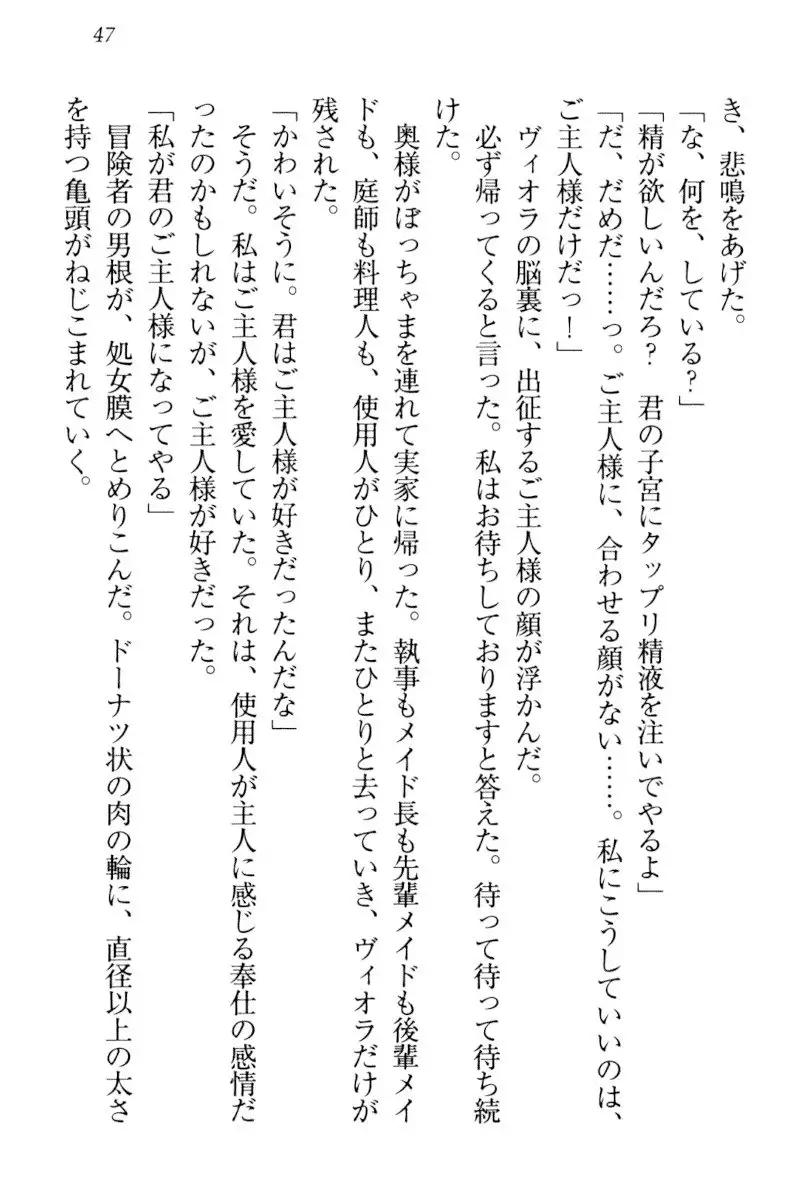 47
き、悲鳴をあげた。
「な、何を、している?」
「精が欲しいんだろ?　君の子宮にタップリ精液を注いでやるよ」
「だ、だめだ……っ。ご主人様に、合わせる顔がない……。私にこうしていいのは、
ご主人様だけだっ!」
ヴィオラの脳裏に、出征するご主人様の顔が浮かんだ。
必ず帰ってくると言った。私はお待ちしておりますと答えた。待って待って待ち続
けた。
奥様がぼっちゃまを連れて実家に帰った。執事もメイド長も先輩メイドも後輩メイ
ドも、庭師も料理人も、使用人がひとり、またひとりと去っていき、ヴィオラだけが
残された。
「かわいそうに。君はご主人様が好きだったんだな」
そうだ。私はご主人様を愛していた。それは、使用人が主人に感じる奉仕の感情だ
ったのかもしれないが、ご主人様が好きだった。
「私が君のご主人様になってやる」
冒険者の男根が、処女膜へとめりこんだ。ドーナツ状の肉の輪に、直径以上の太さ
を持つ亀頭がねじこまれていく。